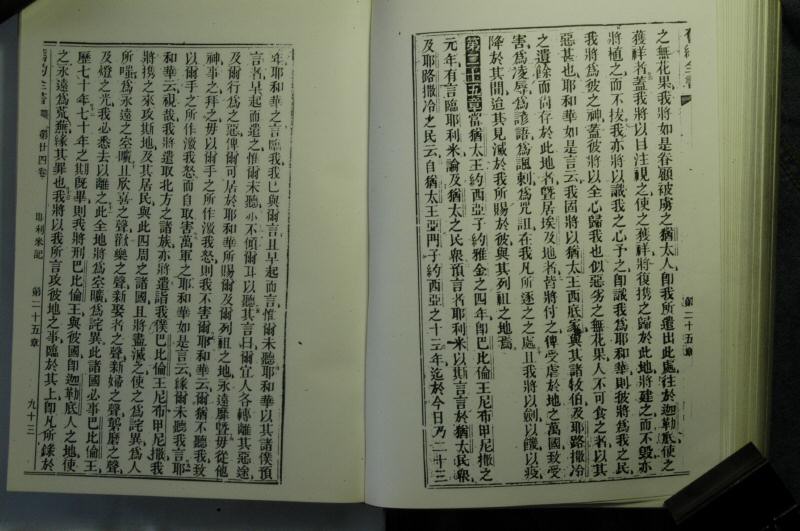 舊約全書
第二十五章
之無花果、我將如是眷顧被虜之猶太人、卽我所遣出此處、往於迦勒底、使之
獲祥者、蓋我將以目注視之、使之獲祥、將復攜之歸於此地、將建之而不毀、亦
將植之而不拔、我亦將以識我之心予之、卽識我爲耶和華、則彼將爲我之民、
我將爲彼之神、蓋彼將以全心歸我也、似惡劣之無花果、人不可食之者、以其
惡甚也、耶和華如是言云、我固將以猶太王西底家、與其諸牧伯、及耶路撒冷
之遺餘、而尙存於此地者、曁居埃及地者、皆將付之、俾受虐於地之萬國、致受
害、爲凌辱、爲諺語、爲諷刺、爲咒詛、在於我凡所逐之之處、且我將以劍、以饑、以疫、
降於其間、迨其見滅於我所賜於彼與其列祖之地焉、
第二十五章 當猶太王約西亞子約雅金之四年、卽巴比倫王尼布甲尼撒之
元年、有言臨耶利米、諭及猶太之民衆、預言者耶利米以斯言言於猶太民衆、
及耶路撒冷之民云、自猶太王亞們子約西亞之十三年、迄於今日、乃二十三
年、耶和華之言臨我、我已與爾言、且早起而言、惟爾未聽、耶和華以其諸僕預
言者、早起而遣之、惟爾未聽、亦不傾爾耳以聽、其言曰、爾宜人各轉離其惡途、
及爾行爲之惡、俾爾可居於耶和華所賜爾及爾列祖之地、永遠靡曁、毋從他
神、事之、拜之、毋以爾手之所作激我怒、則我不害爾、耶和華云、爾猶不聽我、致
以爾手之所作激我怒、而自取害、萬軍之耶和華如是言云、緣爾未聽我言、耶
和華云、視哉、我將遣取北方之諸族、亦將遣詣我僕巴比倫王尼布甲尼撒、我
將攜之來攻斯地、及其居民、與此四周之諸國、且將盡滅之、使之爲詫異、爲人
所嗤、爲永遠之空曠、且欣喜之聲、歡樂之聲、新娶者之聲、新婦之聲、磨之聲、
及燈之光、我必悉去以離之、此全地將爲空曠、爲詫異、此諸國必事巴比倫王、
歷七十年、七十年之期旣畢、則我將刑巴比倫王、與彼國、卽迦勒底人之地、使
之永遠爲荒蕪、緣其罪也、我將以我所言攻彼地之事、臨於其上、卽凡所錄於
舊約全書 第廿四卷 耶利米記 第二十五章 九十三